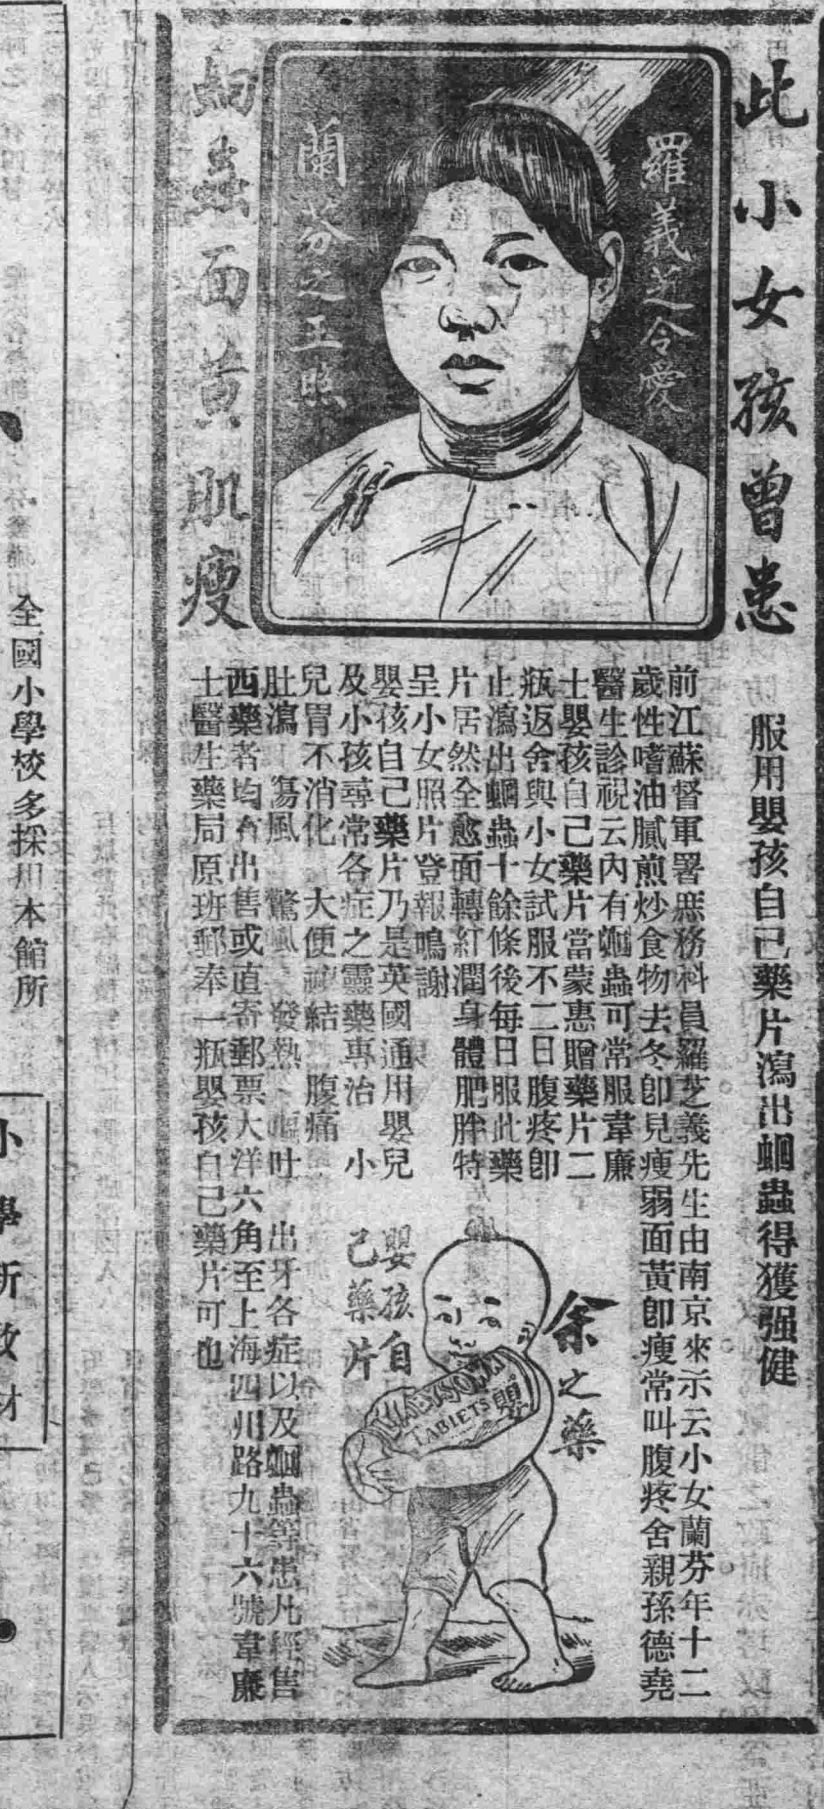 此小女孩曾患
服用嬰孩自己藥片瀉出蛔蟲得獲强健
羅義芝令愛
蘭芬之玉照
蛔蟲面黄肌瘦
前江蘇督軍署庶務科員羅芝義先生由南京來示云小女蘭芬年十二
歲性嗜油膩煎炒食物去冬卽見瘦弱面黃卽瘦常叫腹疼舍親孫德堯
醫生診視云內有蛔蟲可常服韋廉
士嬰孩自己藥片當蒙惠贈藥片二
瓶返舍與小女試服不二日腹疼卽
止瀉出蛔蟲十餘條後每日服此藥
片居然全愈面轉紅潤身體肥胖特
呈小女照片登報鳴謝
嬰孩自己藥片乃是英國通用嬰兒
及小孩尋常各症之靈藥專治 小
兒胃不消化 大便祕結 腹痛
肚瀉 傷風 驚風 發熱 嘔吐 出牙各症以及蛔蟲等患凡經售
西藥者均有出售或直寄郵票大洋六角至上海四川路九十六號韋廉
士醫生藥局原班郵奉一瓶嬰孩自己藥片可也
余之藥
BABY'S OWN
TABLETS
嬰
嬰孩自
己藥片
全國小學校多採用本館所
小學新教材